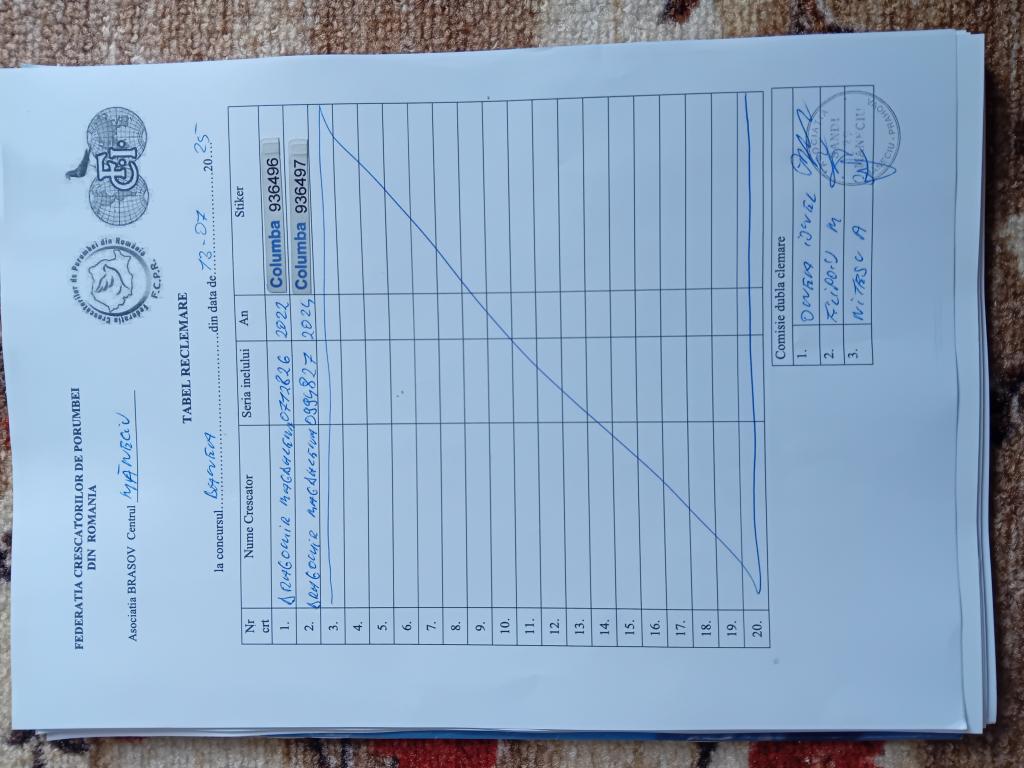 FEDERATIA CRESCATORILOR DE PORUMBEI
DIN ROMANIA
Federatia Crescatorilor de Porumbei din România
F.C.P.R.
FCI
Asociatia BRASOV Centrul MĂNECIU
TABEL RECLEMARE
la concursul din data de 13-07 2025
Nr crt Nume Crescator Seria inelului An Stiker
1. DRAGOMIR MAGDALENA 0712826 2022 Columba 936496
2. DRAGOMIR MAGDALENA 0994827 2024 Columba 936497
3.
4.
5.
6.
7.
8.
9.
10.
11.
12.
13.
14.
15.
16.
17.
18.
19.
20.
Comisie dubla clemare
1.
2. M
3. NITESCU A